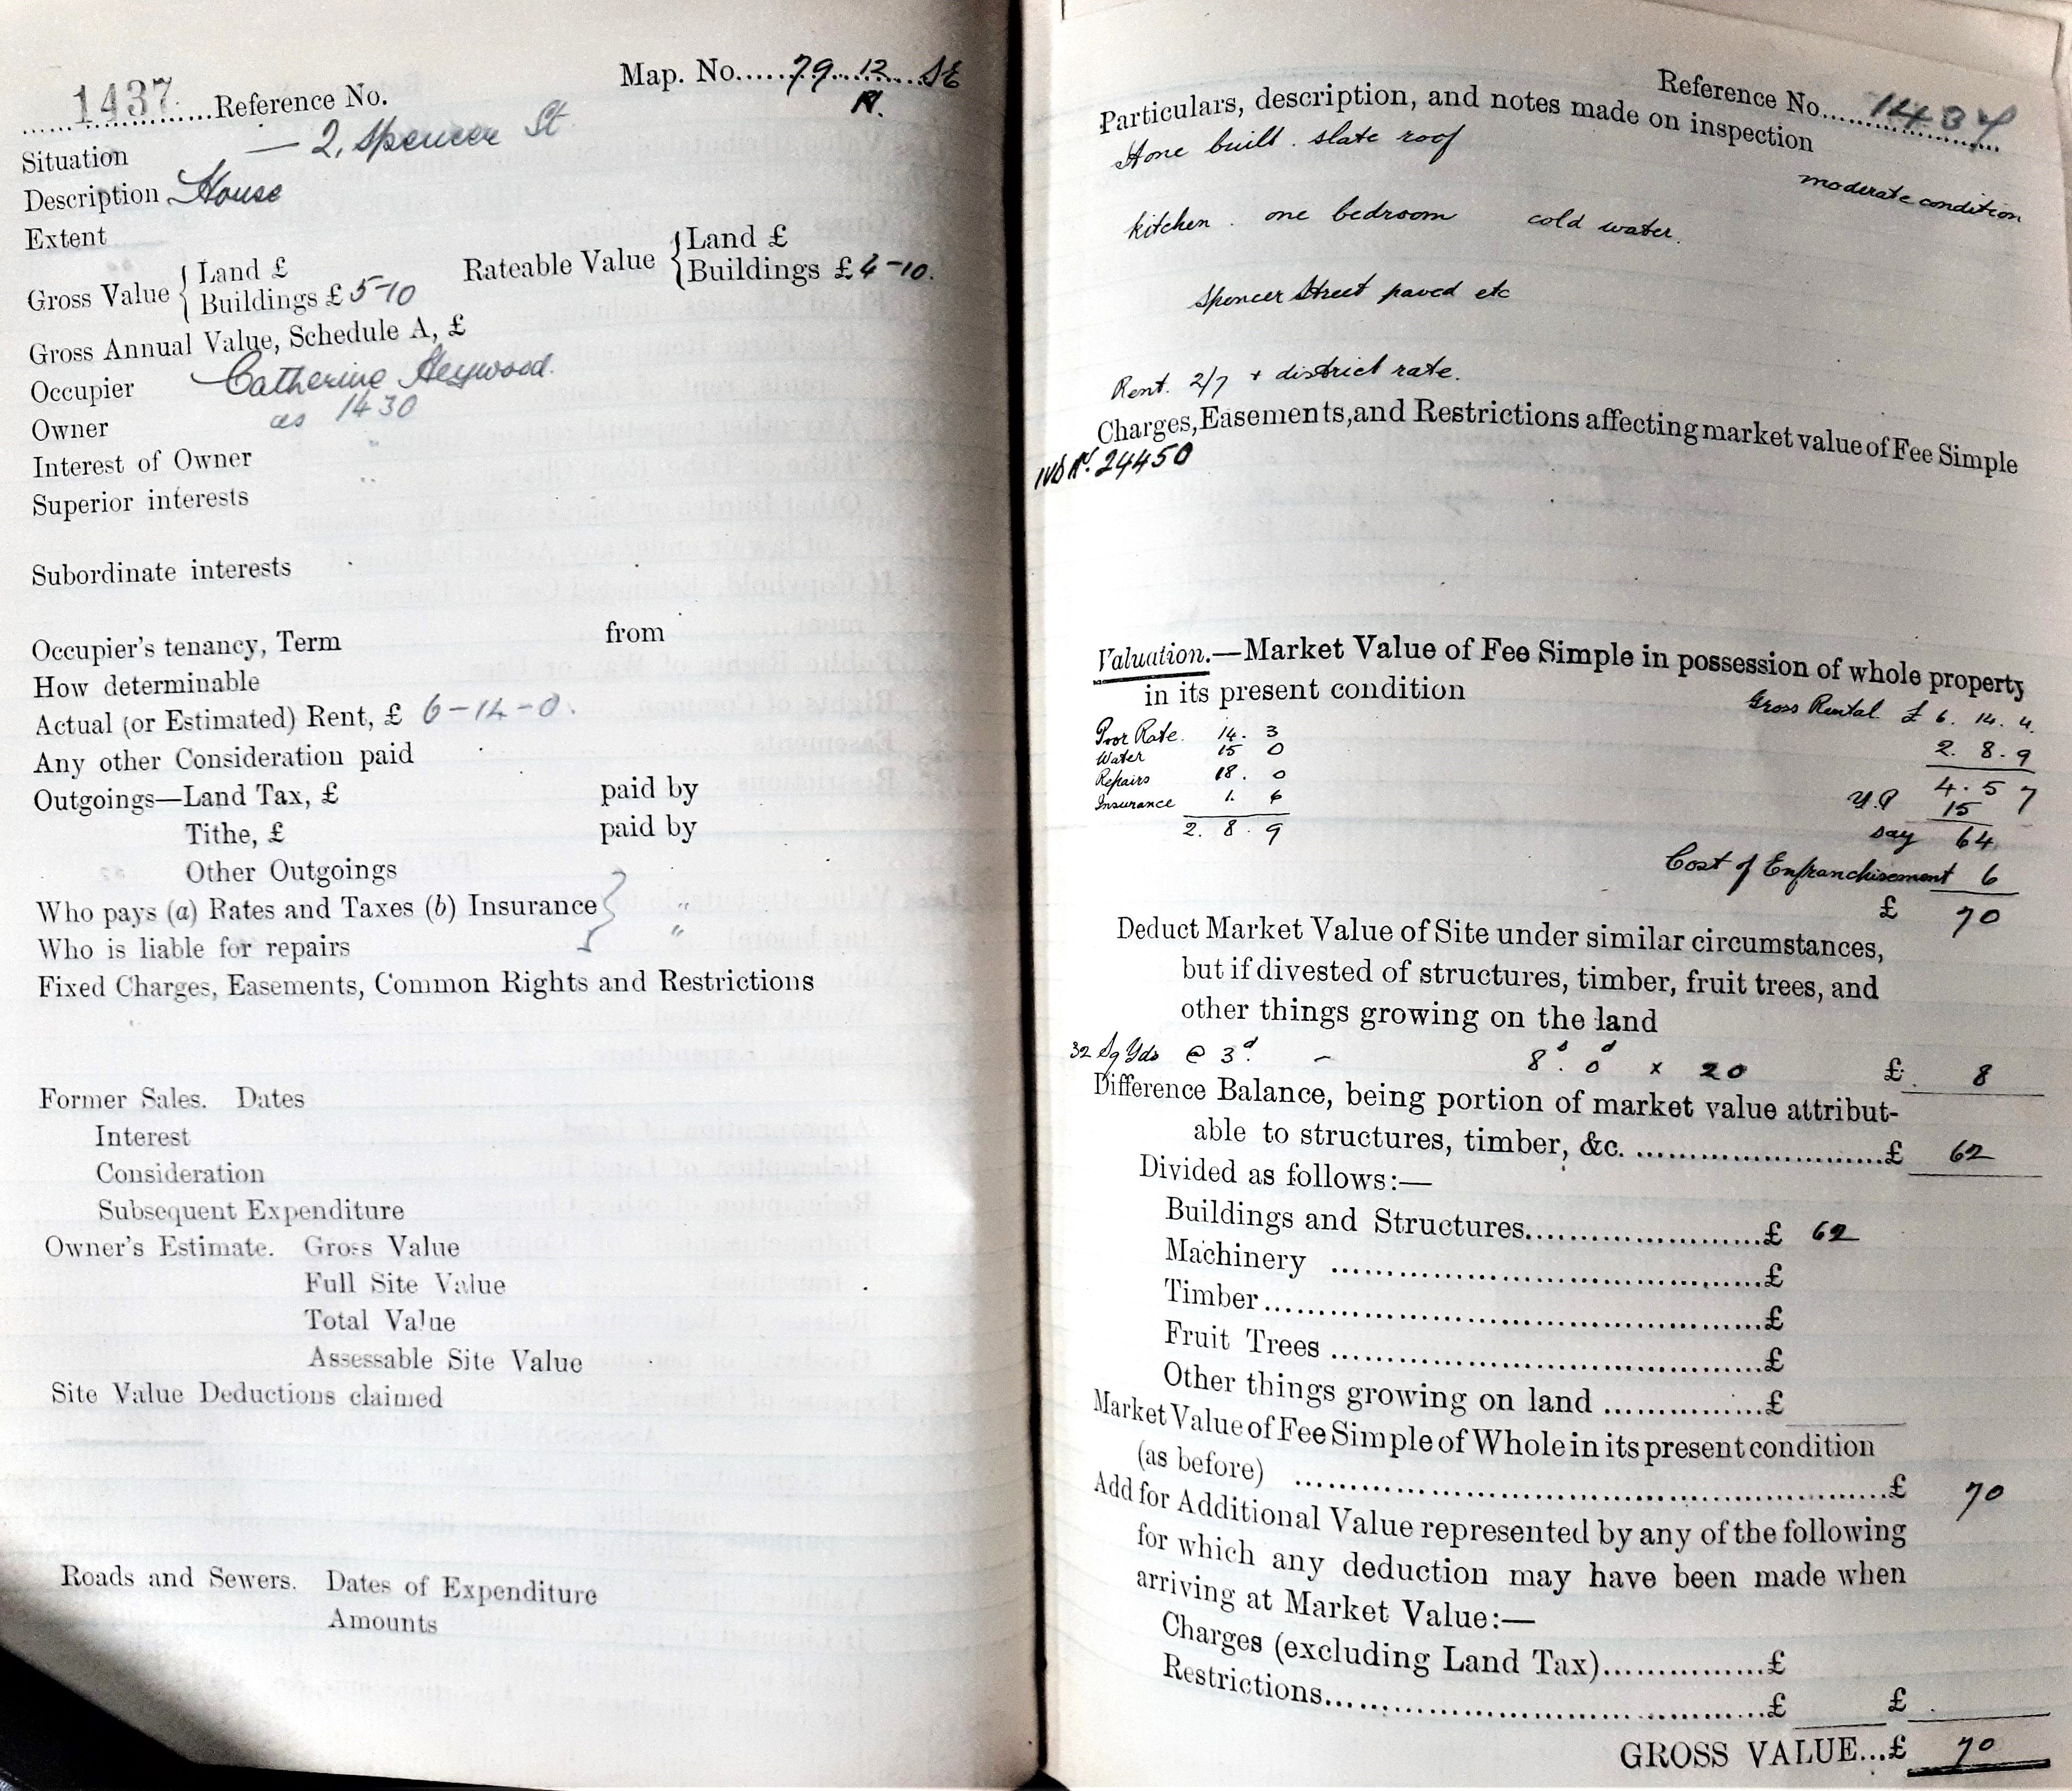 1437 Reference No. Map. No. 79 12 SE
N.
Situation — 2, Spencer St
Description House
Extent
Gross Value { Land £ Rateable Value { Land £
Buildings £ 5-10 Buildings £ 4-10.
Gross Annual Value, Schedule A, £
Occupier Catherine Heywood.
Owner as 1430
Interest of Owner "
Superior interests "
Subordinate interests
Occupier's tenancy, Term from
How determinable
Actual (or Estimated) Rent, £ 6-14-0.
Any other Consideration paid
Outgoings—Land Tax, £ paid by
Tithe, £ paid by
Other Outgoings
Who pays (a) Rates and Taxes (b) Insurance } "
Who is liable for repairs "
Fixed Charges, Easements, Common Rights and Restrictions
Former Sales. Dates
Interest
Consideration
Subsequent Expenditure
Owner's Estimate. Gross Value
Full Site Value
Total Value
Assessable Site Value
Site Value Deductions claimed
Roads and Sewers. Dates of Expenditure
Amounts
Reference No. 1437
Particulars, description, and notes made on inspection
Stone built. slate roof
moderate condition
kitchen. one bedroom cold water.
Spencer Street paved etc
Rent. 2/7 + district rate.
Charges, Easements, and Restrictions affecting market value of Fee Simple
24450
Valuation.—Market Value of Fee Simple in possession of whole property
in its present condition
Gross Rental £ 6. 14. 4.
Poor Rate. 14. 3 2. 8. 9
Water 15 0
Repairs 18. 0 4. 5 7
Insurance 1. 6 Y.P 15
2. 8. 9 say 64
Cost of Enfranchisement 6
£ 70
Deduct Market Value of Site under similar circumstances,
but if divested of structures, timber, fruit trees, and
other things growing on the land
32 Sq Yds @ 3d. - 8s. 0d x 20 £ 8
Difference Balance, being portion of market value attribut-
able to structures, timber, &c. £ 62
Divided as follows:—
Buildings and Structures £ 62
Machinery £
Timber £
Fruit Trees £
Other things growing on land £
Market Value of Fee Simple of Whole in its present condition
(as before) £ 70
Add for Additional Value represented by any of the following
for which any deduction may have been made when
arriving at Market Value:—
Charges (excluding Land Tax) £
Restrictions £ £
GROSS VALUE...£ 70